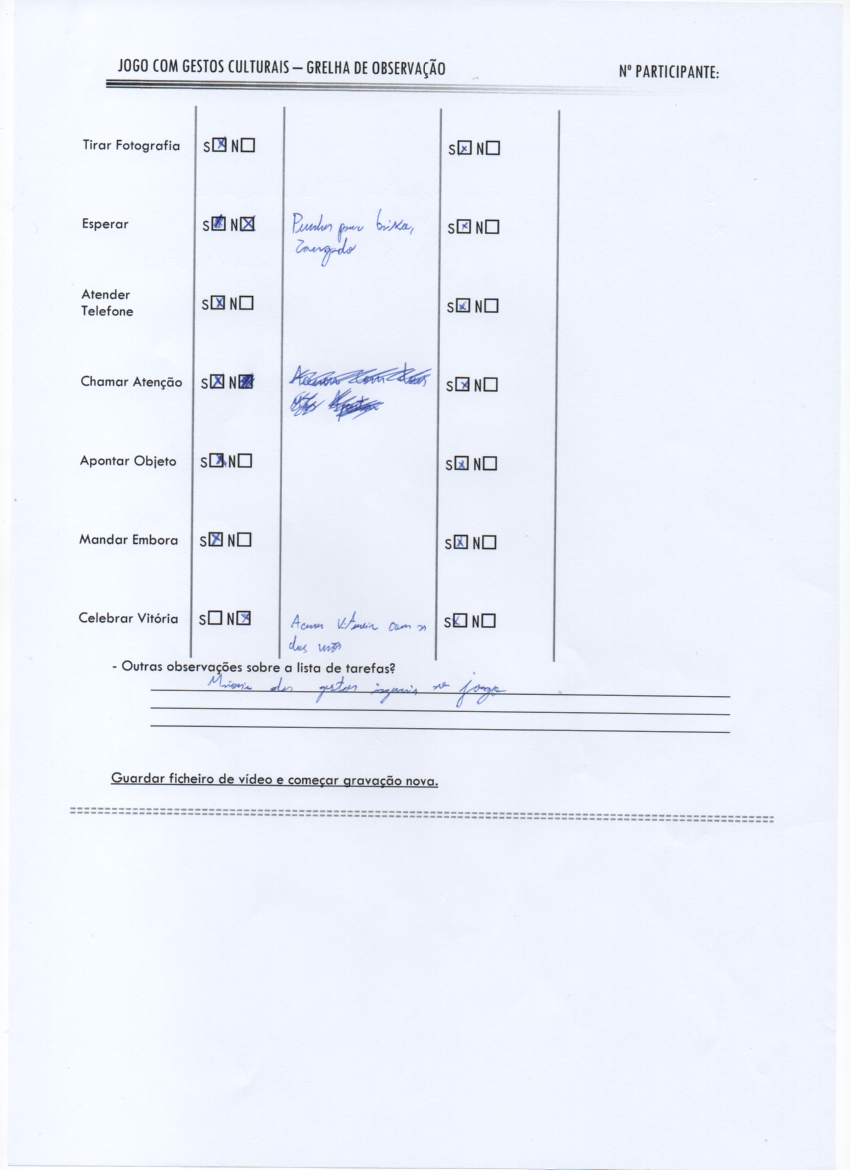 JOGO COM GESTOS CULTURAIS – GRELHA DE OBSERVAÇÃO
Nº PARTICIPANTE:
Tirar Fotografia S☒ N☐ S☒ N☐
Esperar S☒ N☒ Punhos para baixo, S☒ N☐
Zangado
Atender
Telefone S☒ N☐ S☒ N☐
Chamar Atenção S☒ N☒ S☒ N☐
Apontar Objeto S☒ N☐ S☒ N☐
Mandar Embora S☒ N☐ S☒ N☐
Celebrar Vitória S☐ N☒ com S☒ N☐
- Outras observações sobre a lista de tarefas?
Maioria dos gestos iguais no jogo
Guardar ficheiro de vídeo e começar gravação nova.